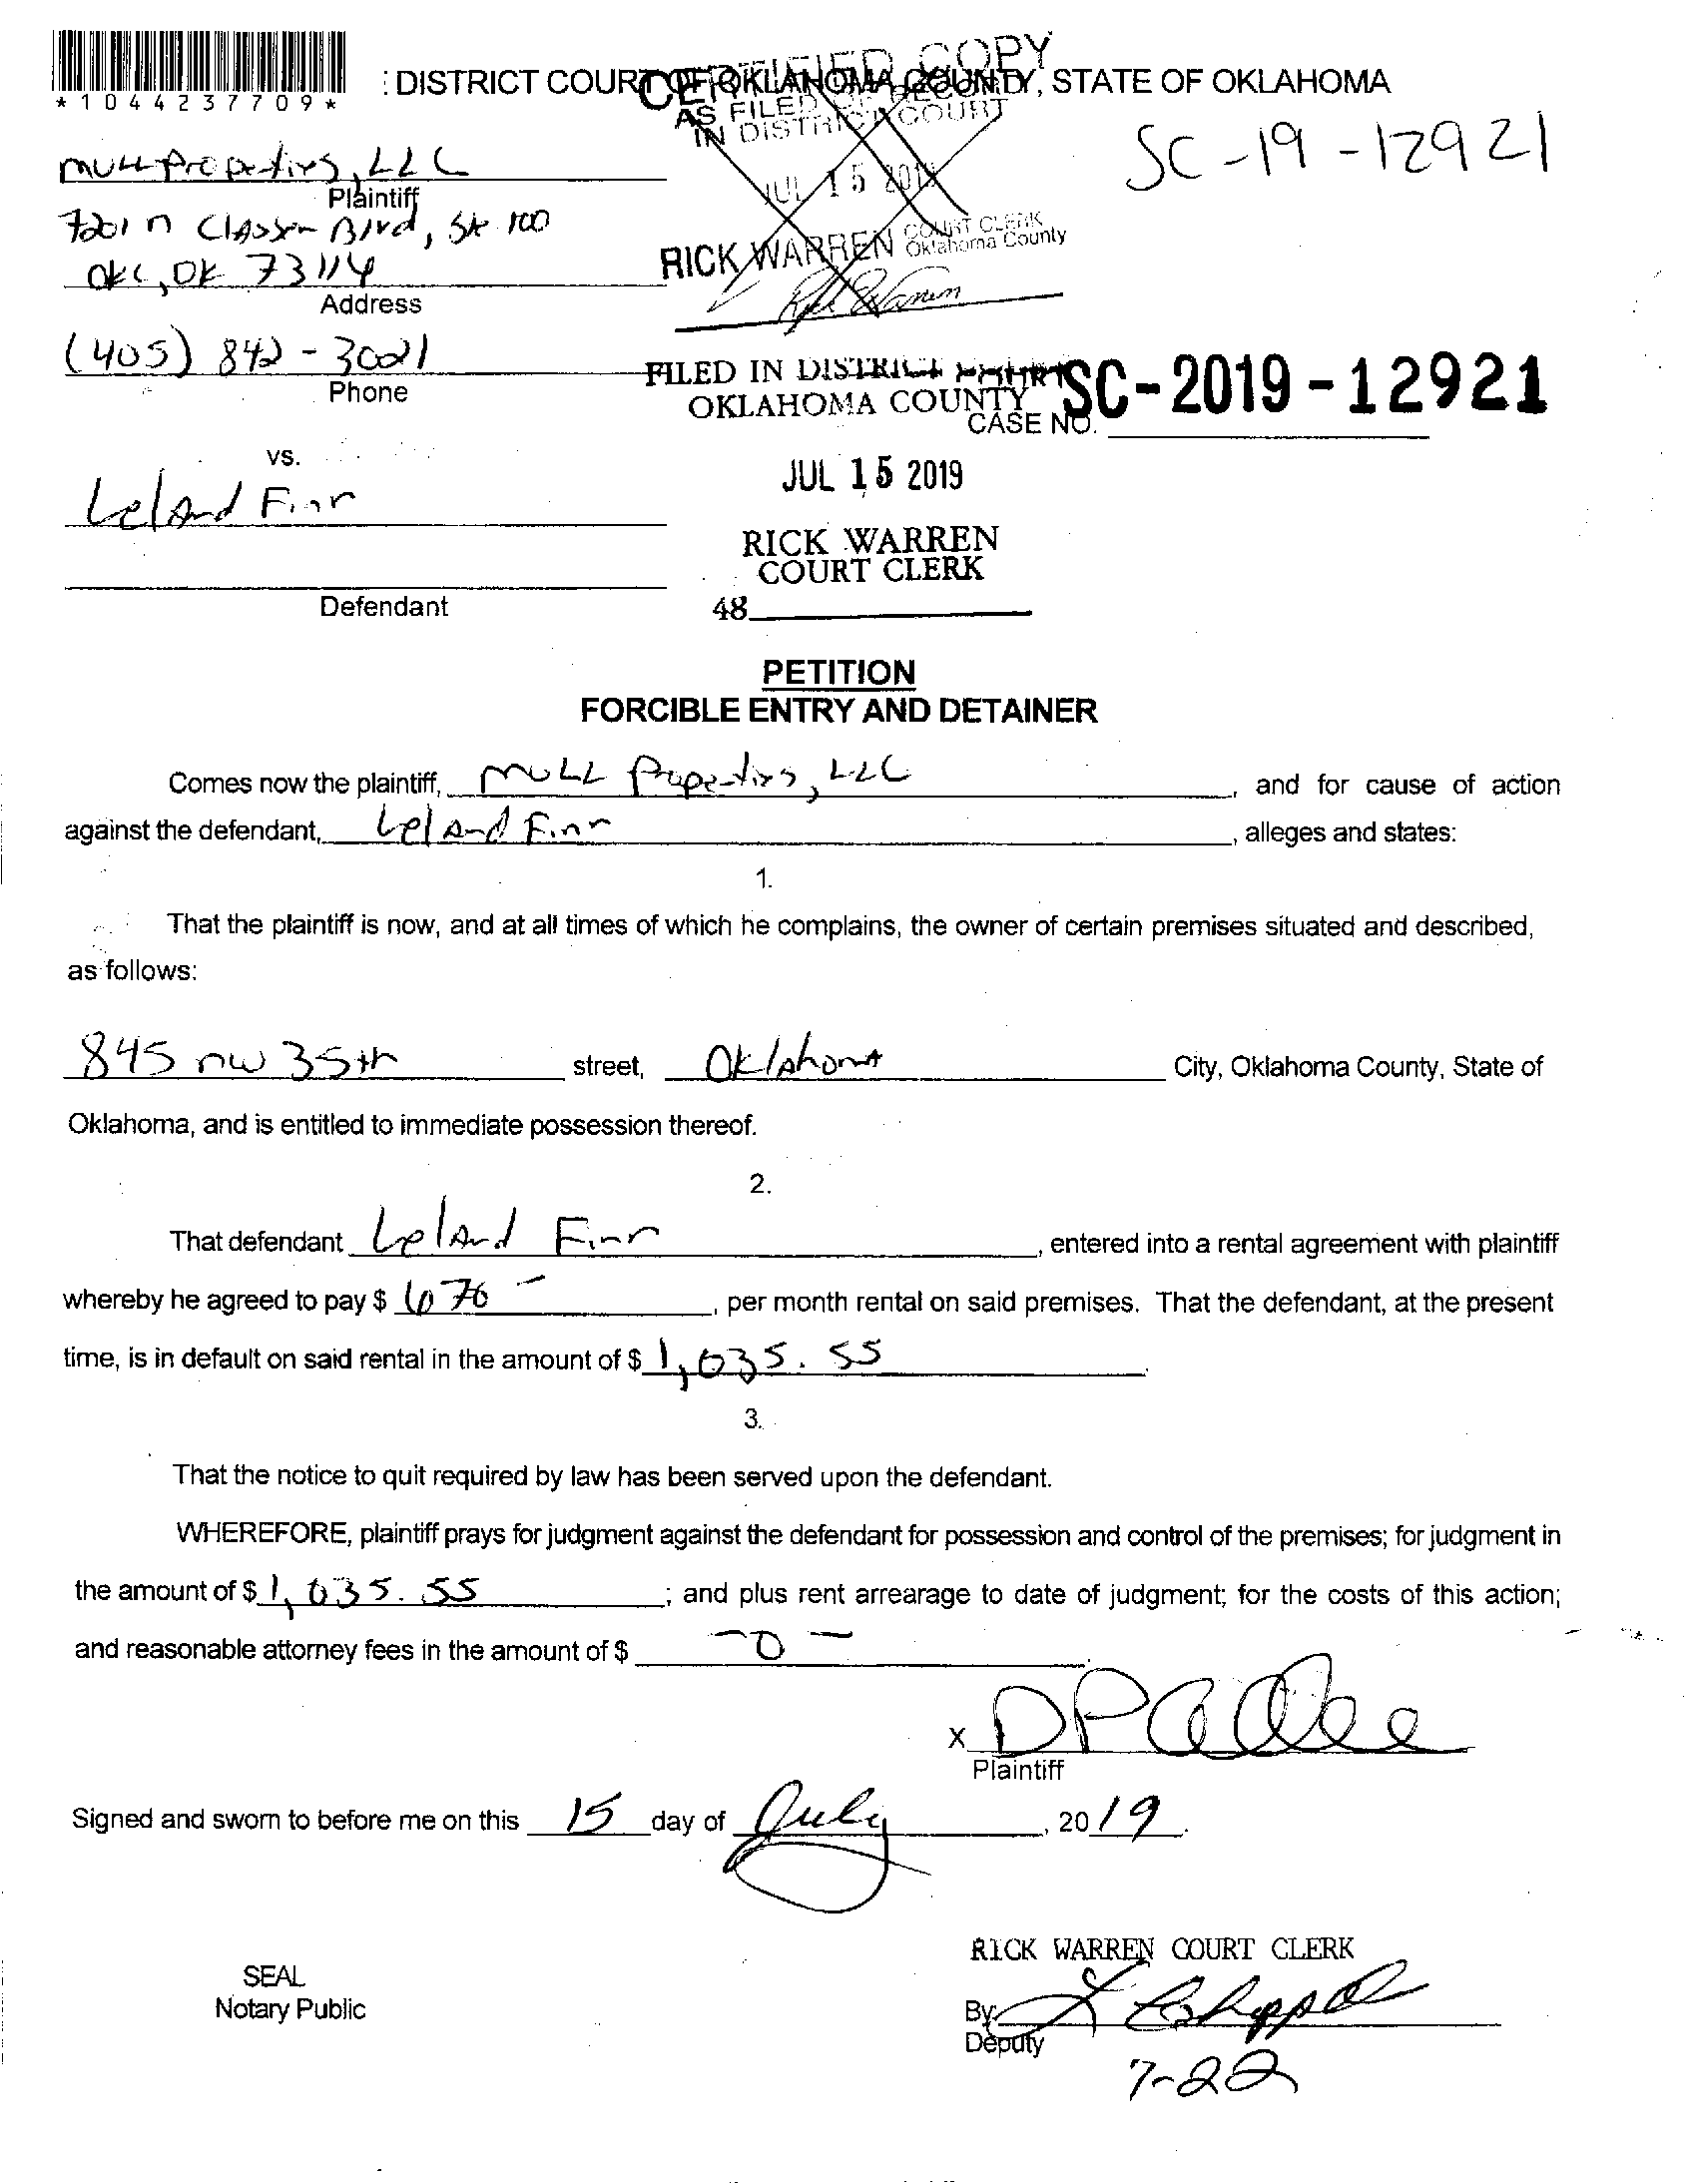 *1044237709*
: DISTRICT COURT OF OKLAHOMA COUNTY, STATE OF OKLAHOMA
CERTIFIED COPY
AS FILED OF RECORD
IN DISTRICT COURT
JUL 15 2019
RICK WARREN COURT CLERK
Oklahoma County
Rick Warren
SC-19-12921
Mull Properties, LLC
Plaintiff
7201 N Classen Blvd, Ste 100
OKC, OK 73114
Address
(405) 842-3021
Phone
FILED IN DISTRICT COURT
OKLAHOMA COUNTY
CASE NO. SC-2019-12921
vs.
JUL 15 2019
Leland Finn
RICK WARREN
COURT CLERK
Defendant
48
PETITION
FORCIBLE ENTRY AND DETAINER
Comes now the plaintiff, Mull Properties, LLC, and for cause of action
against the defendant, Leland Finn, alleges and states:
1.
That the plaintiff is now, and at all times of which he complains, the owner of certain premises situated and described,
as follows:
845 NW 35th street, Oklahoma City, Oklahoma County, State of
Oklahoma, and is entitled to immediate possession thereof.
2.
That defendant Leland Finn, entered into a rental agreement with plaintiff
whereby he agreed to pay $ , per month rental on said premises. That the defendant, at the present
time, is in default on said rental in the amount of $ 1,035.55.
3.
That the notice to quit required by law has been served upon the defendant.
WHEREFORE, plaintiff prays for judgment against the defendant for possession and control of the premises; for judgment in
the amount of $ 1,035.55; and plus rent arrearage to date of judgment; for the costs of this action;
and reasonable attorney fees in the amount of $ -0-.
X
Plaintiff
Signed and sworn to before me on this 15 day of July, 2019.
RICK WARREN COURT CLERK
SEAL
Notary Public
By
Deputy
7-22